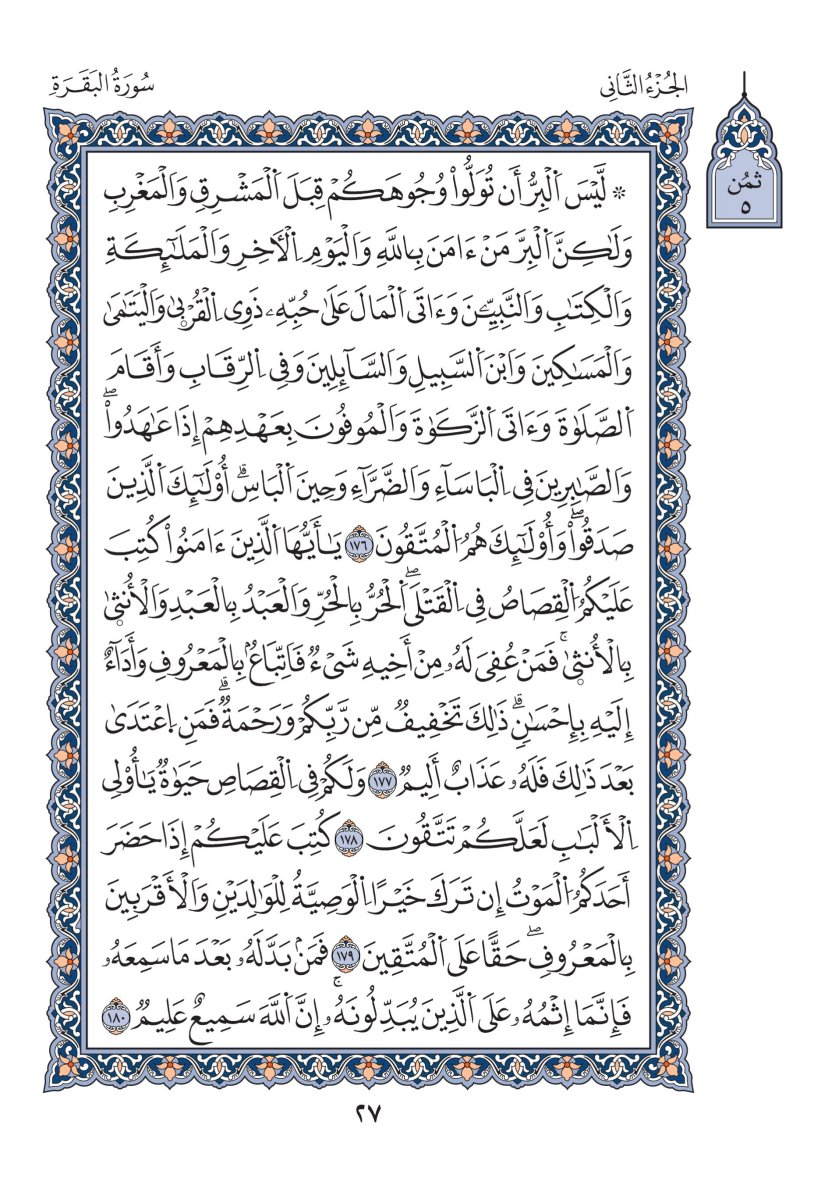 الجُزْءُ الثَّانِي
سُورَةُ البَقَرَةِ
ثُمُن
٥
۞ لَّيْسَ اَ۬لْبِرُّ أَن تُوَلُّواْ وُجُوهَكُمْ قِبَلَ اَ۬لْمَشْرِقِ وَالْمَغْرِبِ
وَلَٰكِنَّ اَ۬لْبِرَّ مَنْ ءَامَنَ بِاللَّهِ وَالْيَوْمِ اِ۬لْأٓخِرِ وَالْمَلَٰٓئِكَةِ
وَالْكِتَٰبِ وَالنَّبِيِّـۧنَ وَءَاتَى اَ۬لْمَالَ عَلَىٰ حُبِّهِۦ ذَوِي اِ۬لْقُرْب۪ىٰ وَالْيَتَٰمَىٰ
وَالْمَسَٰكِينَ وَابْنَ اَ۬لسَّبِيلِ وَالسَّآئِلِينَ وَفِي اِ۬لرِّقَابِ وَأَقَامَ
اَ۬لصَّلَوٰةَ وَءَاتَى اَ۬لزَّكَوٰةَ وَالْمُوفُونَ بِعَهْدِهِمْ إِذَا عَٰهَدُواْۖ
وَالصَّٰبِرِينَ فِي اِ۬لْبَاسَآءِ وَالضَّرَّآءِ وَحِينَ اَ۬لْبَاسِۗ أُوْلَٰٓئِكَ اَ۬لَّذِينَ
صَدَقُواْۖ وَأُوْلَٰٓئِكَ هُمُ اُ۬لْمُتَّقُونَ ١٧٦ يَٰٓأَيُّهَا اَ۬لَّذِينَ ءَامَنُواْ كُتِبَ
عَلَيْكُمُ اُ۬لْقِصَاصُ فِي اِ۬لْقَتْلَىۖ اَ۬لْحُرُّ بِالْحُرِّ وَالْعَبْدُ بِالْعَبْدِ وَالْأُنث۪ىٰ
بِالْأُنث۪ىٰۚ فَمَنْ عُفِيَ لَهُۥ مِنْ أَخِيهِ شَيْءٌ فَاتِّبَاعُۢ بِالْمَعْرُوفِ وَأَدَآءٌ
إِلَيْهِ بِإِحْسَٰنٖۗ ذَٰلِكَ تَخْفِيفٌ مِّن رَّبِّكُمْ وَرَحْمَةٌۗ فَمَنِ اِ۪عْتَدَىٰ
بَعْدَ ذَٰلِكَ فَلَهُۥ عَذَابٌ أَلِيمٌ ١٧٧ وَلَكُمْ فِي اِ۬لْقِصَاصِ حَيَوٰةٌ يَٰٓأُوْلِي
اِ۬لْأَلْبَٰبِ لَعَلَّكُمْ تَتَّقُونَ ١٧٨ كُتِبَ عَلَيْكُمْ إِذَا حَضَرَ
أَحَدَكُمُ اُ۬لْمَوْتُ إِن تَرَكَ خَيْرًا اِ۬لْوَصِيَّةُ لِلْوَٰلِدَيْنِ وَالْأَقْرَبِينَ
بِالْمَعْرُوفِۖ حَقًّا عَلَى اَ۬لْمُتَّقِينَ ١٧٩ فَمَنۢ بَدَّلَهُۥ بَعْدَ مَا سَمِعَهُۥ
فَإِنَّمَا إِثْمُهُۥ عَلَى اَ۬لَّذِينَ يُبَدِّلُونَهُۥۚ إِنَّ اَ۬للَّهَ سَمِيعٌ عَلِيمٌ ١٨٠
٢٧